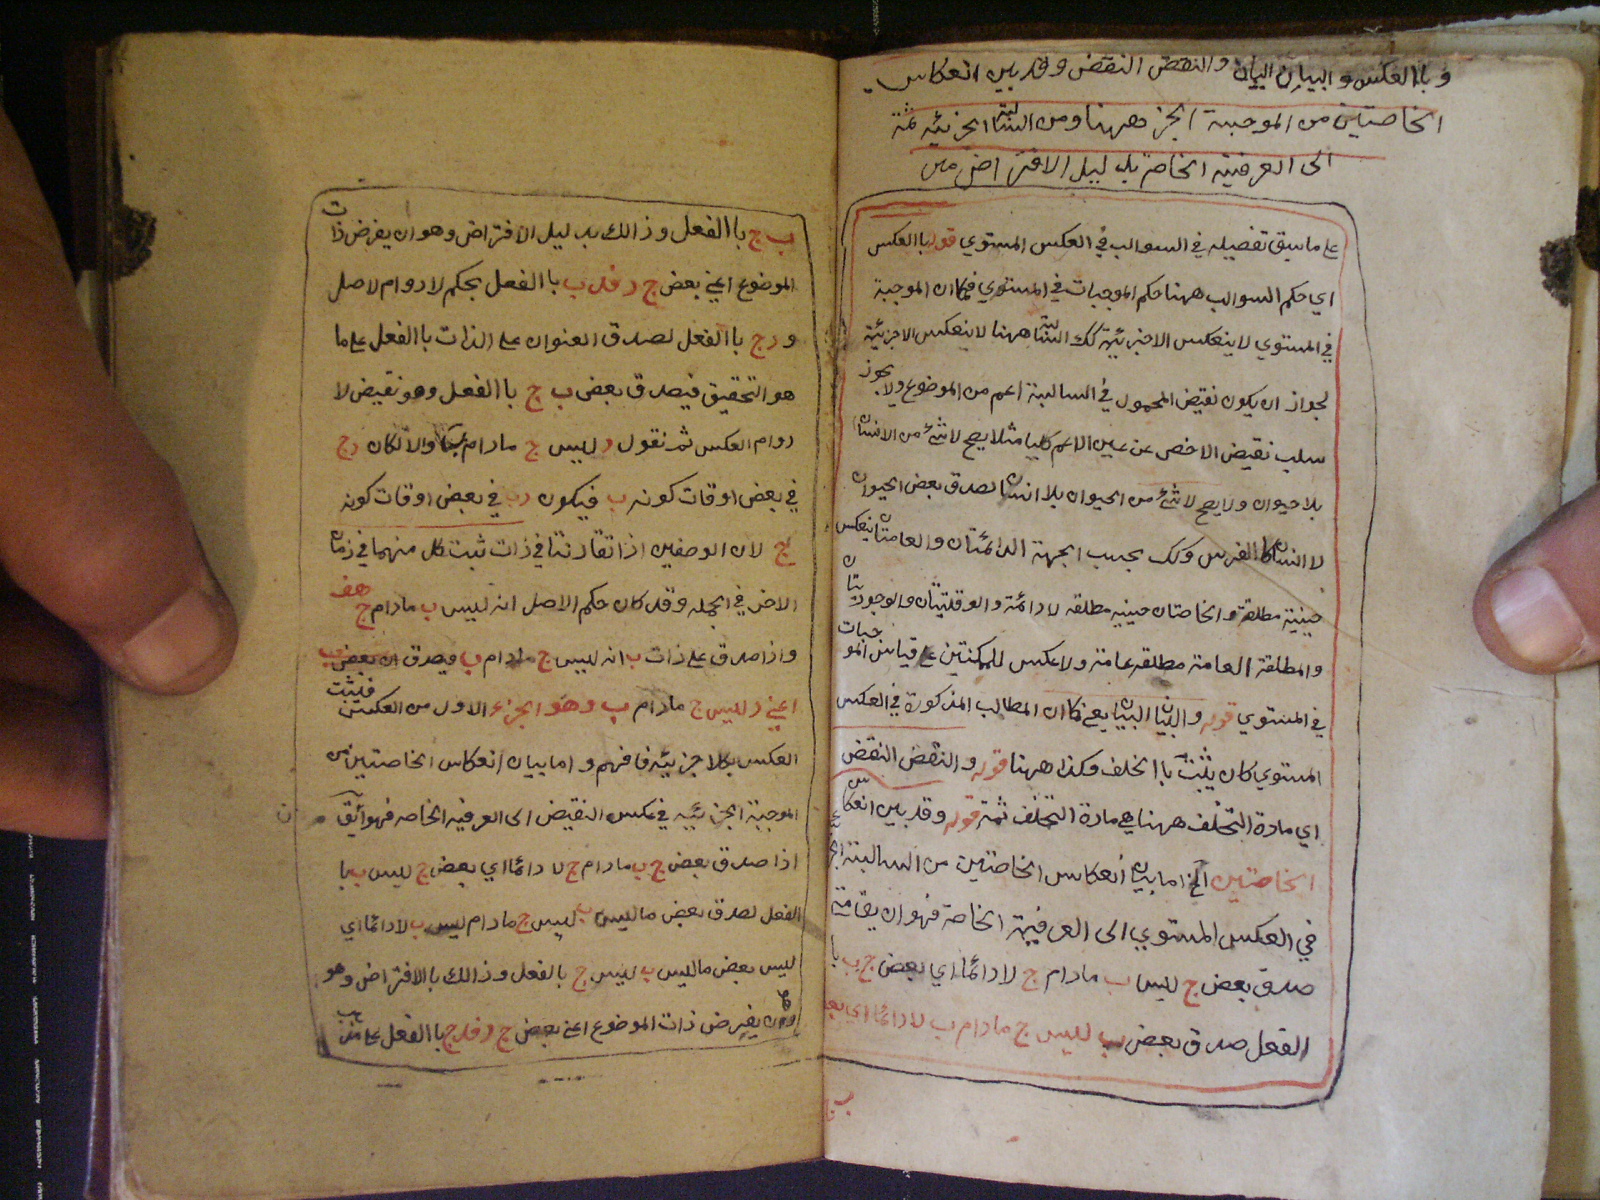 وبا العكس والبيان البيان والنقض النقض وقد بين انعكاس
الخاصتين من الموجبة الجز ههنا ومن السالبة الجزئيه ثمة
الى العرفية الخاصة بدليل الافتراض من
على ما سبق تفصيله في السوالب في العكس المستوي قوله با العكس
اي حكم السوالب ههنا حكم الموجبات في المستوي فكما ان الموجبة
في المستوي لا ينعكس الا جزئية كك السالبة ههنا لا ينعكس الا جزئية
لجواز ان يكون نقيض المحمول في السالبة اعم من الموضوع ولا يجوز
سلب نقيض الاخص عن عين الاعم كليا مثلا يصح لا شئ من الانسان
بلا حيوان ولا يصح لا شئ من الحيوان بلا انسان لصدق بعض الحيوان
لا انسان كا الفرس وكك بحسب الجهة الدائمتان والعامتان ينعكس
حينية مطلقة والخاصتان حينيه مطلقه لا دائمة والوقتيتان والوجوديتان
والمطلقة العامة مطلقه عامة ولا عكس للممكنتين على قياس الموجبات
في المستوي قوله والبيان البيان يعنى كما ان المطالب المذكورة في العكس
المستوي كان يثبت با الخلف فكذا ههنا قوله والنقض النقض
اي مادة التخلف ههنا هي مادة التخلف ثمة قوله وقد بين انعكاس
الخاصتين الخ اما بيان انعكاس الخاصتين من السالبة الجز
في العكس المستوي الى العرفية الخاصة فهو ان يقا متى
صدق بعض ج ليس ب مادام ج لا دائما اي بعض ج ب با
الفعل صدق بعض ب ليس ج مادام ب لا دائما اي بعض
ب ج با الفعل وذالك بدليل الافتراض وهو ان يفرض ذات
الموضوع اعني بعض ج د فدب با الفعل بحكم لا دوام لاصل
و د ج با الفعل لصدق العنوان على الذات با الفعل على ما
هو التحقيق فيصدق بعض ب ج با الفعل وهو نقيض لا
دوام العكس ثم نقول د ليس ج مادام ب والا لكان د ج
في بعض اوقات كونه ب فيكون د ب في بعض اوقات كونه
ج لان الوصفين اذا تقارنتا في ذات ثبت كل منهما في زمان
الاخر في الجمله وقد كان حكم الاصل انه ليس ب مادام ج هف
واذا صدق على ذات ب انه ليس ج مادام ب فيصدق ان بعض ب
اعني د ليس ج مادام ب وهو الجزء الاول من العكس فيثبت
العكس بكلا جزئيه فافهم واما بيان انعكاس الخاصتين من
الموجبة الجزئيه في عكس النقيض الى العرفيه الخاصه فهو ان يق
اذا صدق بعض ج ب مادام ج لا دائما اي بعض ج ليس ب با
الفعل لصدق بعض ما ليس ب ليس ج مادام ليس ب لا دائما اي
ليس بعض ما ليس ب ليس ج بالفعل وذالك با الافتراض وهو
ان يفرض ذات الموضوع اعنى بعض ج د فدج با الفعل على